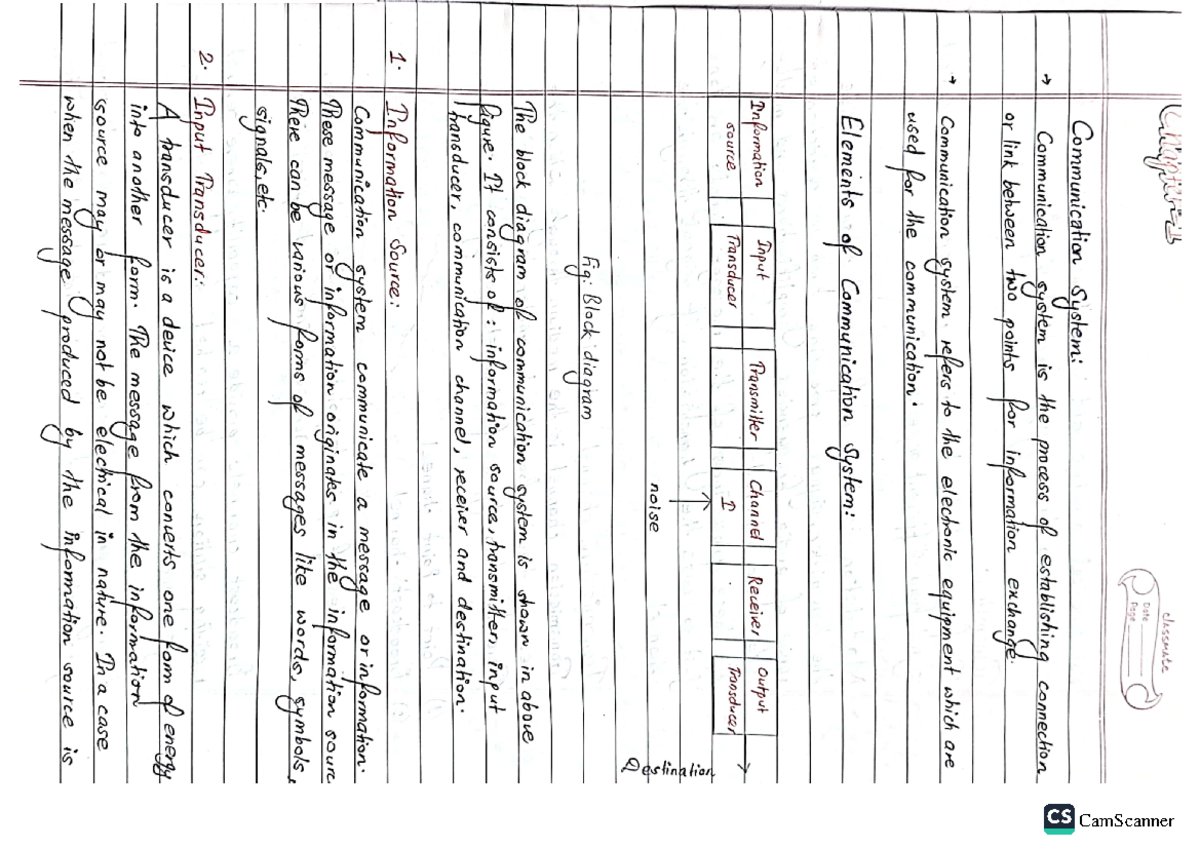 classmate
Date
Page
Communication System:
→ Communication system is the process of establishing connection
or link between two points for information exchange.
→ Communication system refers to the electronic equipment which are
used for the communication.
Elements of Communication System:
Information source
Input Transducer
Transmitter
Channel I
Receiver
Output Transducer
Destination
noise
fig: Block diagram
The block diagram of communication system is shown in above
figure. It consists of: information source, transmitter, input
transducer, communication channel, receiver and destination.
1. Information Source:
Communication system communicate a message or information.
These message or information originates in the information sourc
There can be various forms of messages like words, symbols,
signals, etc.
2. Input Transducer:
A transducer is a device which converts one form of energy
into another form. The message from the information
source may or may not be electrical in nature. In a case
when the message produced by the information source is
CS CamScanner